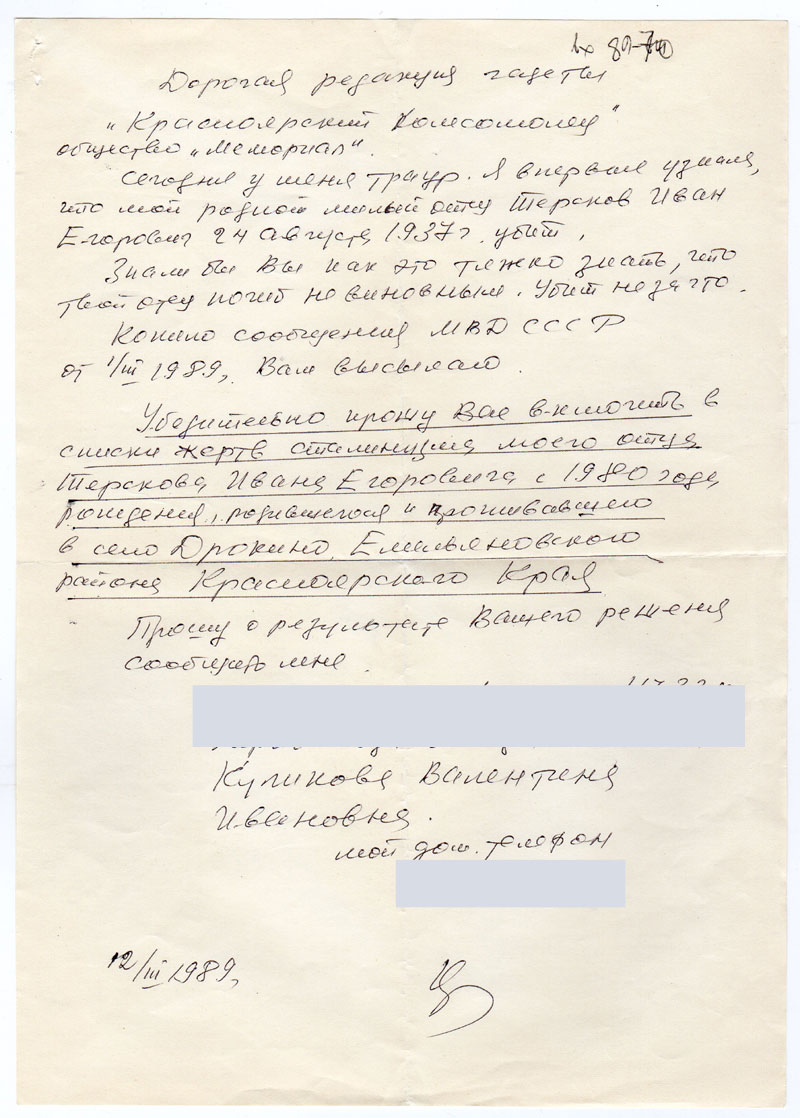 вх 89-
Дорогая редакция газеты
„Красноярский Комсомолец"
общество „Мемориал".
Сегодня у меня траур. Я впервые узнала,
что мой родной милый отец Терсков Иван
Егорович 24 августа 1937 г. убит.
Знали бы Вы как это тяжко знать, что
твой отец погиб невиновным. Убит не за что.
Копию сообщения МВД СССР
от 1/III 1989, Вам высылаю.
Убедительно прошу Вас включить в
списки жертв сталинизма моего отца
Терскова Ивана Егоровича с года
рождения, родившегося и проживавшего
в село Дрокино, Емельяновского
района Красноярского Края
Прошу о результате Вашего решения
сообщить мне.
Куликова Валентина
Ивановна.
мой дом. телефон
12/III 1989,